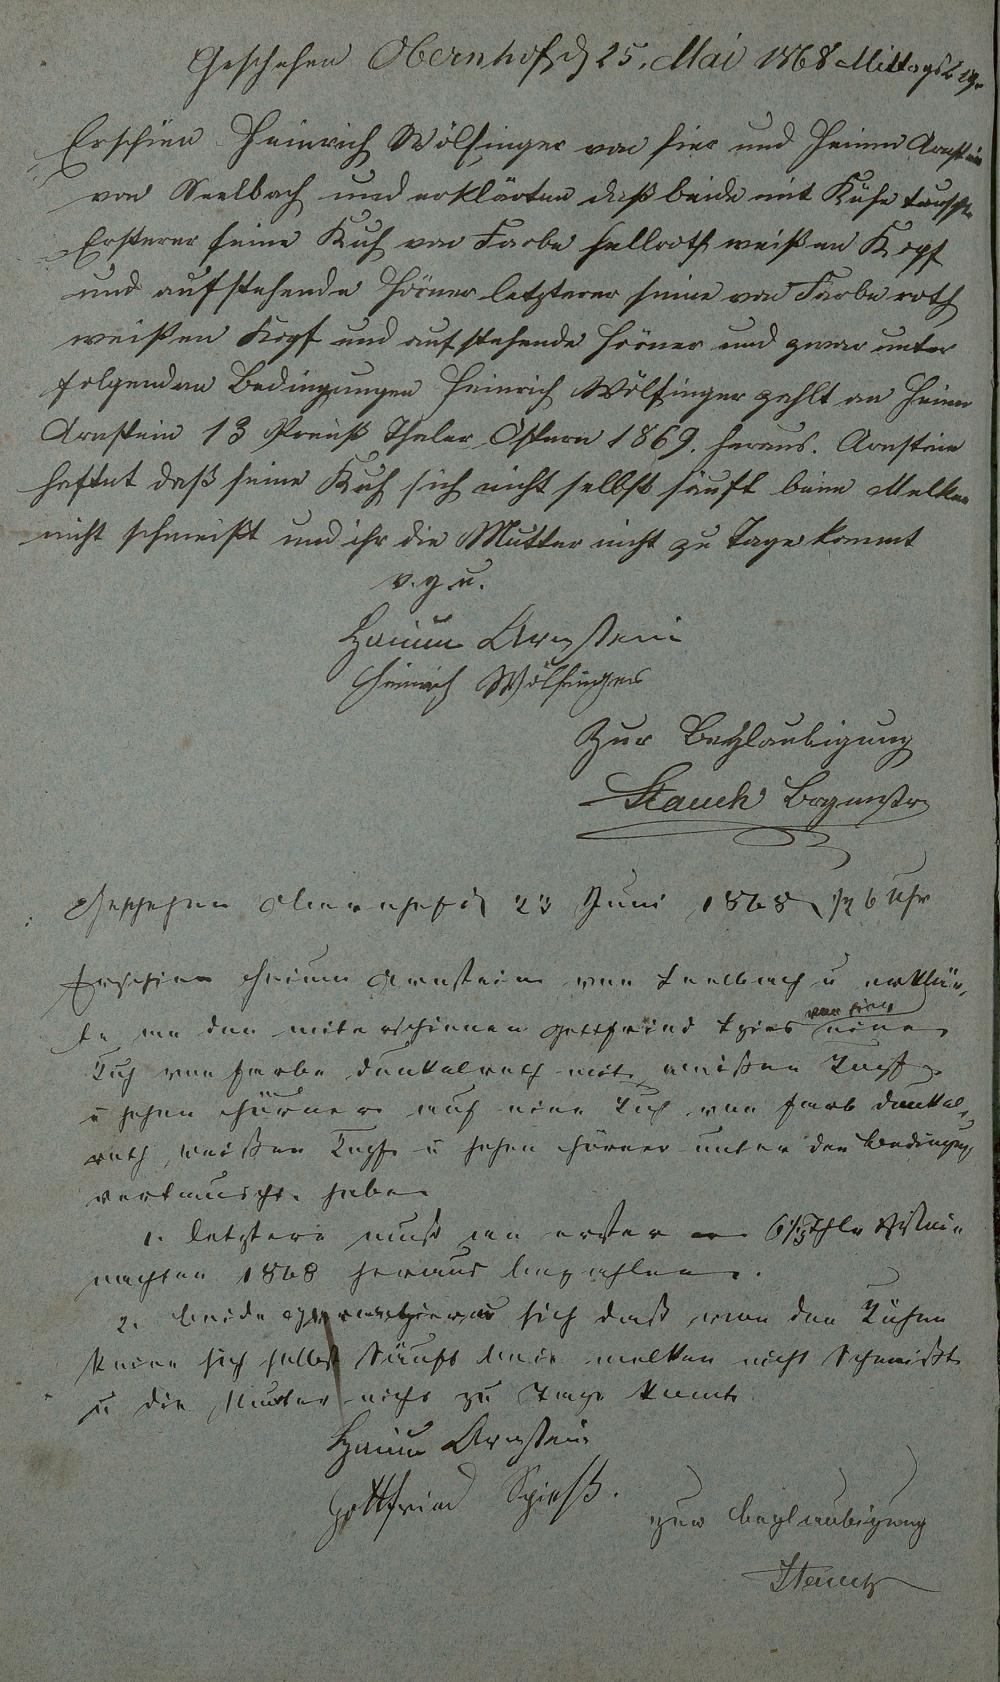 Geschehen Obernhof d 25. Mai 1868 Mittags
Erschien Heinrich Wölfinger von hier und Heium Arnstein
von Seelbach und erklärten daß beide mit Kühe tauschte
Ersterer seine Kuh von Farbe hellroth weißen Kopf
und aufstehende Hörner letzterer seine von Farbe roth
weißen Kopf und aufstehende Hörner und zwar unter
folgenden Bedingungen Heinrich Wölfinger zahlt an Heium
Arnstein 13 Preuß Thaler Ostern 1869. heraus. Arnstein
haftet daß seine Kuh sich nicht selbst säuft beim Melken
nicht schmeißt und ihr die Mutter nicht zu Tage kommt
v. g. u.
Haium Arnstein
Heinrich Wölfinger
Zur Beglaubigung
Stauch Brgmstr
Geschehen Obernhof d 23 Juni 1868 ½ 6 Uhr
Erschien Heium Arnstein von Seelbach u erklär-
te an den miterschienen Gottfried Spies von hier eine
Kuh von Farbe dunkelroth mit weißen Kopf
u hohen Hörner auf eine Kuh von Farb dunkel-
roth weißen Kopf u hohen Hörner unter den Bedingung
vertauscht haben
1. letztere muß an erster 6½ Thlr Weinn
nachten 1868 heraus bezahlen.
2. beide sich daß von den Kühen
keine sich selbst säuft beim melken nicht Schmeißt
u die Mutter nicht zu Tage komt
Haium Arnstein
Gottfried Spieß.
zur beglaubigung
Stauch